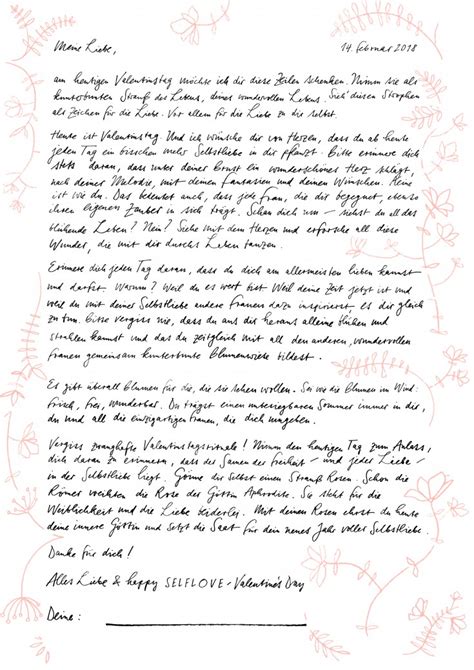 Meine Liebe, 14. Februar 2018
am heutigen Valentinstag möchte ich dir diese Zeilen schenken. Nimm sie als
kunterbunten Strauß des Lebens, deines wundervollen Lebens. Sieh' diesen Strophen
als Zeichen für die Liebe. Vor allem für die Liebe zu dir selbst.
Heute ist Valentinstag. Und ich wünsche dir von Herzen, dass du ab heute
jeden Tag ein bisschen mehr Selbstliebe in dir pflanzt. Bitte erinnere dich
stets daran, dass unter deiner Brust ein wunderschönes Herz schlägt,
nach deiner Melodie, mit deinen Fantasien und deinen Wünschen. Keine
ist wie du. Das bedeutet auch, dass jede Frau, die dir begegnet, ebenso
ihren eigenen Zauber in sich trägt. Schau dich um – siehst du all das
blühende Leben? Nein? Siehe mit dem Herzen und erforsche all diese
Wunder, die mit dir durchs Leben tanzen.
Erinnere dich jeden Tag daran, dass du dich am allermeisten lieben kannst
und darfst. Warum? Weil du es wert bist. Weil deine Zeit jetzt ist und
weil du mit deiner Selbstliebe andere Frauen dazu inspirierst es dir gleich
zu tun. Bitte vergiss nie, dass du aus dir heraus alleine blühen und
strahlen kannst und dass du zeitgleich mit all den anderen, wundervollen
Frauen gemeinsam kunterbunte Blumenwiese bildest.
Es gibt überall Blumen für die, die sie sehen wollen. Sei wie die Blumen im Wind:
Frisch, frei, wunderbar. Du trägst einen unbesiegbaren Sommer immer in dir,
du und all die einzigartigen Frauen, die dich umgeben.
Vergiss zwanghafte Valentinstagsrituale! Nimm den heutigen Tag zum Anlass,
dich daran zu erinnern, dass der Samen der Freiheit – und jeder Liebe –
in der Selbstliebe liegt. Gönne dir selbst einen Strauß Rosen. Schon die
Römer weihten die Rose der Göttin Aphrodite. Sie steht für die
Weiblichkeit und die Liebe beiderlei. Mit deinen Rosen ehrst du heute
deine innere Göttin und setzt die Saat für dein neues Jahr voller Selbstliebe.
Danke für dich!
Alles Liebe & happy SELFLOVE-Valentine's Day
Deine: